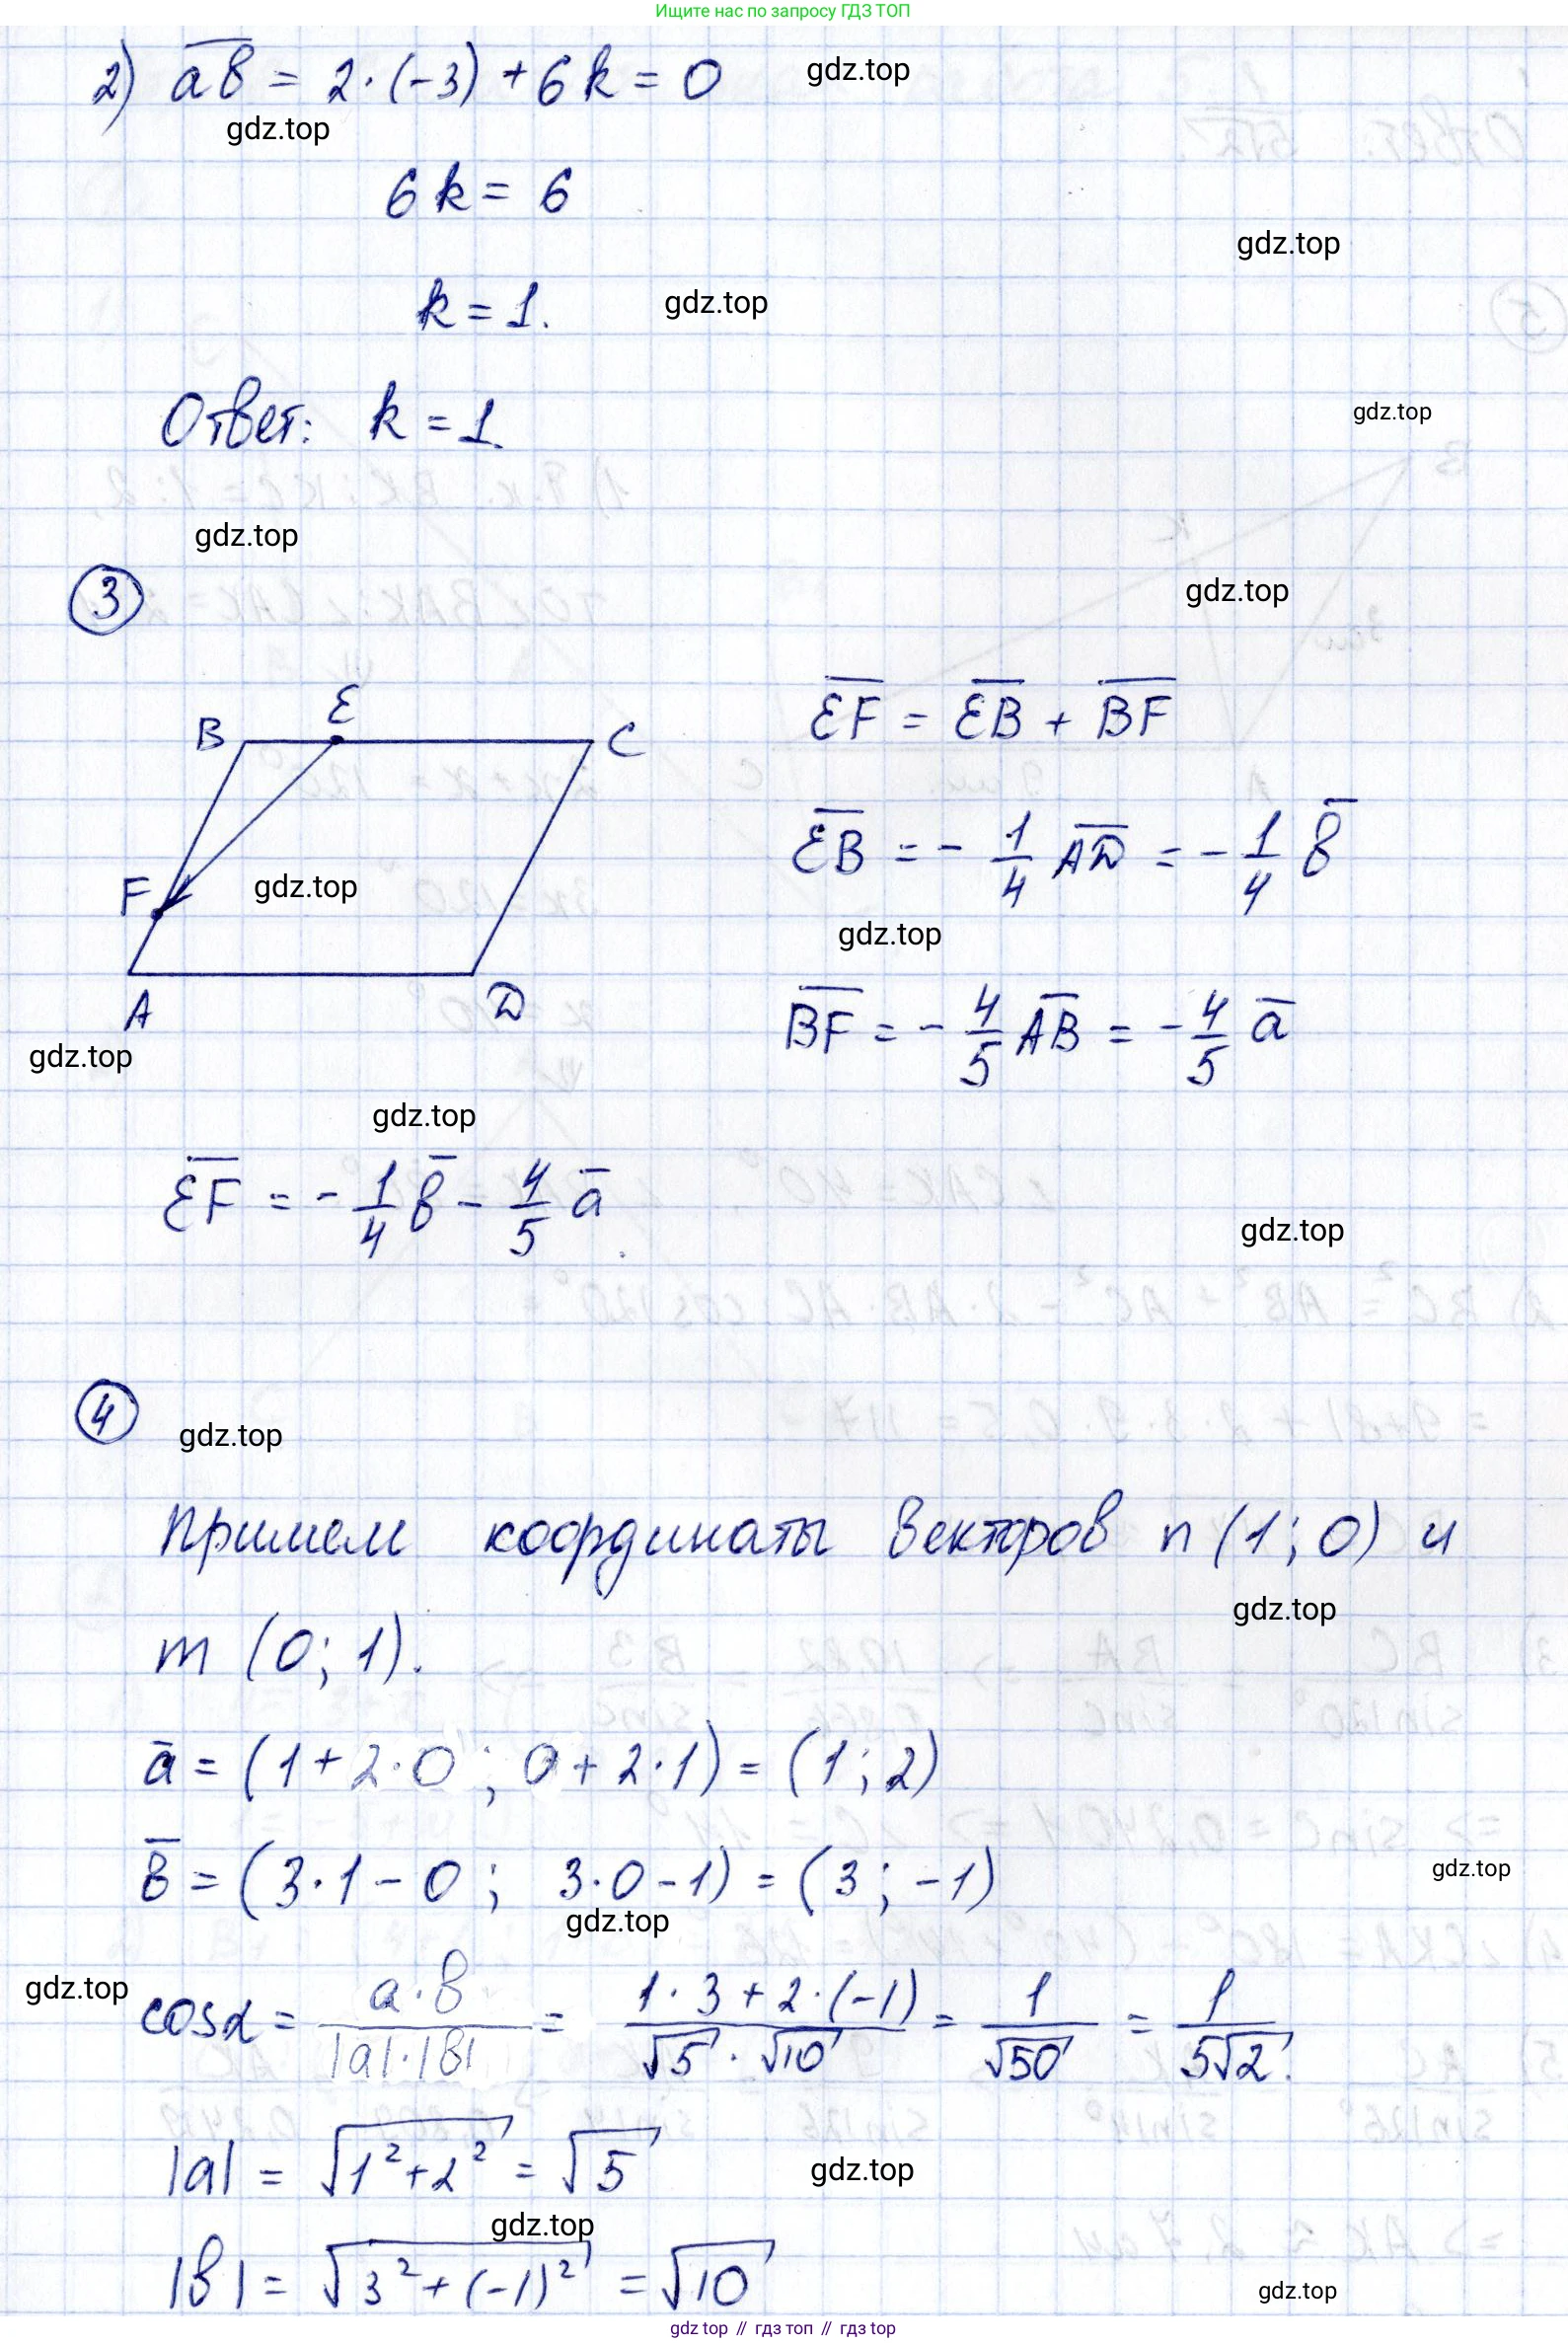 Ищите нас по запросу ГДЗ ТОП
2) ab = 2·(-3) + 6k = 0
gdz.top
gdz.top
6k = 6
gdz.top
k = 1.
gdz.top
Ответ: k = 1.
gdz.top
gdz.top
3
gdz.top
B E C
F
A D
gdz.top
EF = EB + BF
EB = - 1/4 AD = - 1/4 b
gdz.top
BF = - 4/5 AB = - 4/5 a
gdz.top
gdz.top
EF = - 1/4 b - 4/5 a
gdz.top
4
gdz.top
Примем координаты векторов n (1; 0) и
gdz.top
m (0; 1).
a = (1 + 2·0; 0 + 2·1) = (1; 2)
b = (3·1 - 0; 3·0 - 1) = (3; -1)
gdz.top
gdz.top
gdz.top
cosα = a·b / |a|·|b| = 1·3 + 2·(-1) / √5·√10 = 1/√50 = 1/5√2.
|a| = √1² + 2² = √5
gdz.top
gdz.top
|b| = √3² + (-1)² = √10
gdz.top
gdz top // гдз топ // гдз top